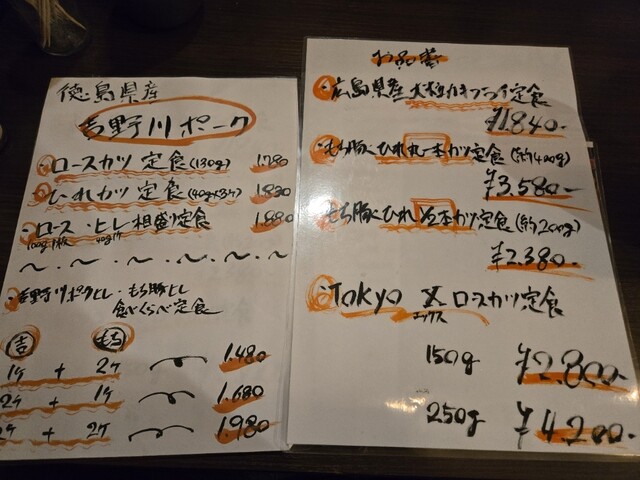 徳島県産
吉野川ポーク
・ロースカツ定食(130g) 1.780
・ひれカツ定食(40g×3ケ) 1.830
・ロース・ヒレ相盛り定食 1.880
100g1枚 40g1ケ
〜・〜・〜・〜・〜・〜
・吉野川ポークヒレ・もち豚ヒレ
食べくらべ定食
吉 もち
1ケ + 2ケ 1.480
2ケ + 1ケ 1.680
2ケ + 2ケ 1.980
お品書
・広島県産大粒カキフライ定食
¥1.840-
・もち豚ひれ丸一本カツ定食(約400g)
¥3.580-
・もち豚ひれ1/2本カツ定食(約200g)
¥2.380-
・Tokyo X ロースカツ定食
エックス
150g ¥2.800-
250g ¥4.200-